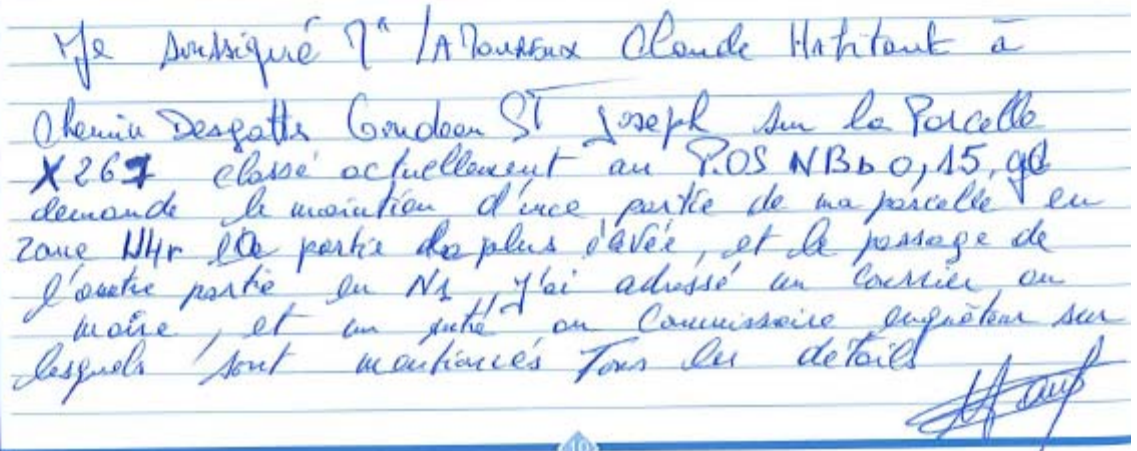 Je soussigné Mr LATOUREUX Claude Habitant à
Chemin Desgatts Gondeau St Joseph sur la Parcelle
X267 classé actuellement au P.OS NBb 0,15, je
demande le maintien d'une partie de ma parcelle en
zone N4r la partie la plus élevée, et le passage de
l'autre partie en N1, J'ai adressé un courrier au
maire, et un autre au Commissaire enquêteur sur
lesquels sont mentionnés Tous les détails
10